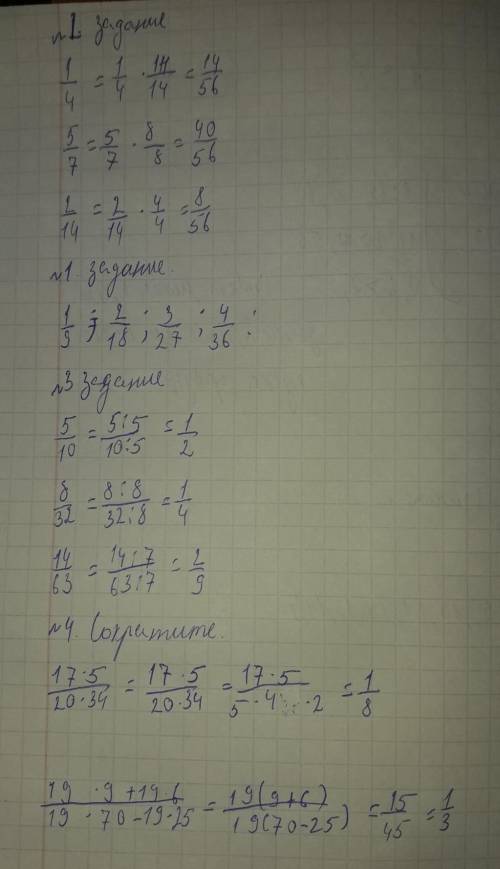 №2. задание
1/4 = 1/4 · 14/14 = 14/56
5/7 = 5/7 · 8/8 = 40/56
2/14 = 2/14 · 4/4 = 8/56
№1 задание.
1/9 ; 2/18 ; 3/27 ; 4/36 ;
№3 задание
5/10 = 5:5/10:5 = 1/2
8/32 = 8:8/32:8 = 1/4
14/63 = 14:7/63:7 = 2/9
№4. Сократите.
17·5/20·34 = 17·5/20·34 = 17·5/5·4 ·2 = 1/8
19·9+19·6/19·70-19·25 = 19(9+6)/19(70-25) = 15/45 = 1/3